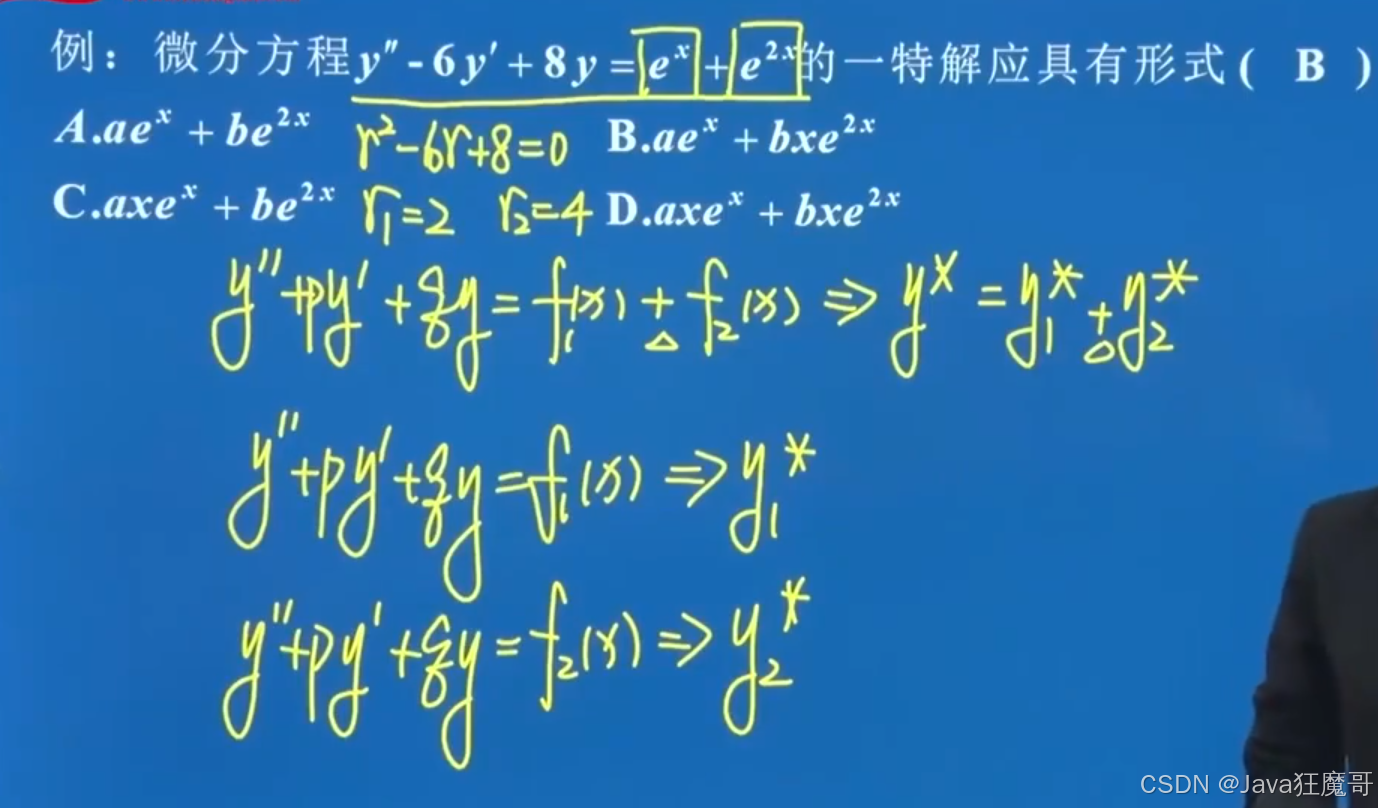 例：微分方程y″-6y′+8y=eˣ+e²ˣ的一特解应具有形式( B )
A.aeˣ+be²ˣ r²-6r+8=0 B.aeˣ+bxe²ˣ
C.axeˣ+be²ˣ r₁=2 r₂=4 D.axeˣ+bxe²ˣ
y″+py′+qy=f₁(x)+f₂(x)⇒y*=y₁*+y₂*
y″+py′+qy=f₁(x)⇒y₁*
y″+py′+qy=f₂(x)⇒y₂*
CSDN @Java狂魔哥